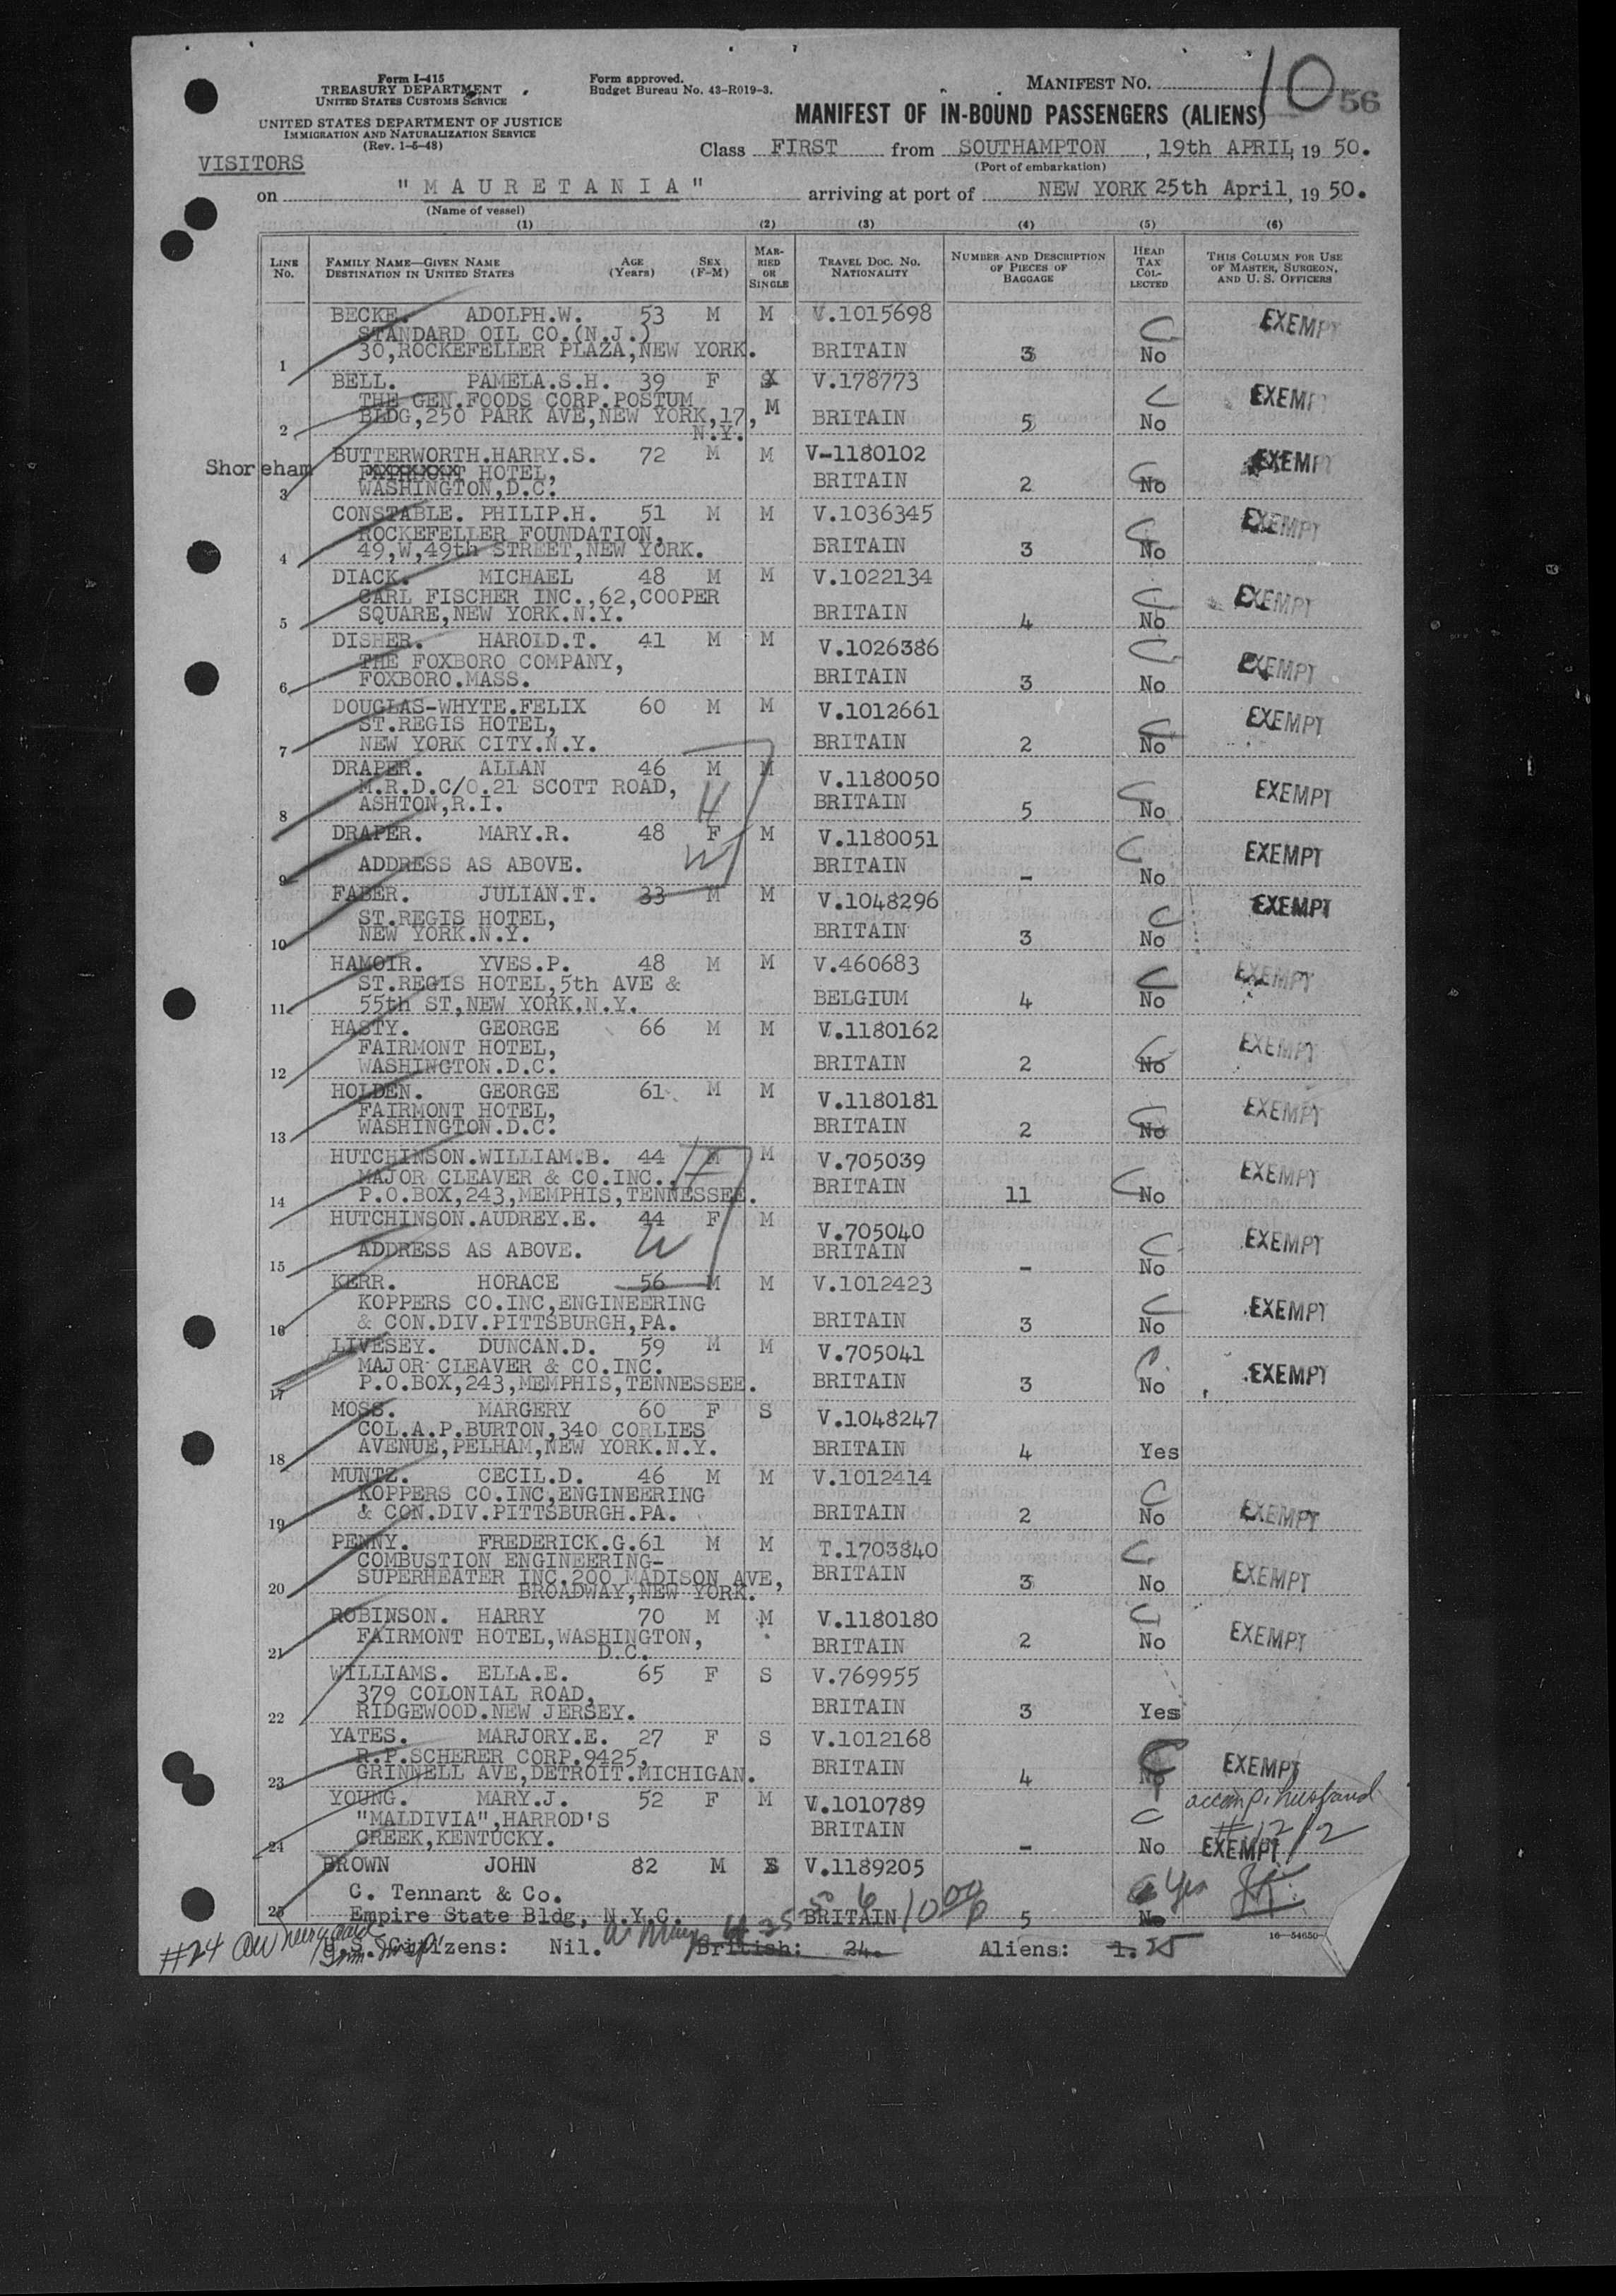 Form I-415
TREASURY DEPARTMENT
UNITED STATES CUSTOMS SERVICE
UNITED STATES DEPARTMENT OF JUSTICE
IMMIGRATION AND NATURALIZATION SERVICE
(Rev. 1-5-48)
Form approved.
Budget Bureau No. 43-R019-3.
MANIFEST NO. 10 56
MANIFEST OF IN-BOUND PASSENGERS (ALIENS)
VISITORS
Class FIRST from SOUTHAMPTON, 19th APRIL, 19 50.
(Port of embarkation)
on "MAURETANIA" arriving at port of NEW YORK 25th April, 19 50.
(Name of vessel)
(1) (2) (3) (4) (5) (6)
LINE No. FAMILY NAME—GIVEN NAME DESTINATION IN UNITED STATES AGE (Years) SEX (F-M) MARRIED OR SINGLE TRAVEL DOC. NO. NATIONALITY NUMBER AND DESCRIPTION OF PIECES OF BAGGAGE HEAD TAX COLLECTED THIS COLUMN FOR USE OF MASTER, SURGEON, AND U. S. OFFICERS
BECKE. ADOLPH.W. 53 M M V.1015698 C EXEMPT
STANDARD OIL CO.(N.J.)
1 30,ROCKEFELLER PLAZA,NEW YORK. BRITAIN 3 No
BELL. PAMELA.S.H. 39 F M V.178773 C EXEMPT
THE GEN.FOODS CORP.POSTUM
2 BLDG,250 PARK AVE,NEW YORK,17, BRITAIN 5 No
N.Y.
BUTTERWORTH.HARRY.S. 72 M M V-1180102 EXEMPT
Shoreham HOTEL,
3 WASHINGTON,D.C. BRITAIN 2 C No
CONSTABLE. PHILIP.H. 51 M M V.1036345 EXEMPT
ROCKEFELLER FOUNDATION,
4 49,W,49th STREET,NEW YORK. BRITAIN 3 C No
DIACK. MICHAEL 48 M M V.1022134
CARL FISCHER INC.,62,COOPER C EXEMPT
5 SQUARE,NEW YORK.N.Y. BRITAIN 4 No
DISHER. HAROLD.T. 41 M M V.1026386 C
THE FOXBORO COMPANY, EXEMPT
6 FOXBORO.MASS. BRITAIN 3 No
DOUGLAS-WHYTE.FELIX 60 M M V.1012661
ST.REGIS HOTEL, EXEMPT
7 NEW YORK CITY.N.Y. BRITAIN 2 C No
DRAPER. ALLAN 46 M M V.1180050
M.R.D.C/O.21 SCOTT ROAD, H EXEMPT
8 ASHTON,R.I. BRITAIN 5 C No
DRAPER. MARY.R. 48 F M V.1180051
9 ADDRESS AS ABOVE. W BRITAIN - C No EXEMPT
FABER. JULIAN.T. 33 M M V.1048296 EXEMPT
ST.REGIS HOTEL, C
10 NEW YORK.N.Y. BRITAIN 3 No
HAMOIR. YVES.P. 48 M M V.460683 EXEMPT
ST.REGIS HOTEL,5th AVE & C
11 55th ST,NEW YORK.N.Y. BELGIUM 4 No
HASTY. GEORGE 66 M M V.1180162
FAIRMONT HOTEL, EXEMPT
12 WASHINGTON.D.C. BRITAIN 2 C No
HOLDEN. GEORGE 61 M M V.1180181
FAIRMONT HOTEL, EXEMPT
13 WASHINGTON.D.C. BRITAIN 2 C No
HUTCHINSON.WILLIAM.B. 44 M M V.705039
MAJOR CLEAVER & CO.INC. H EXEMPT
14 P.O.BOX,243,MEMPHIS,TENNESSEE. BRITAIN 11 C No
HUTCHINSON.AUDREY.E. 44 F M V.705040
15 ADDRESS AS ABOVE. W BRITAIN - C No EXEMPT
KERR. HORACE 56 M M V.1012423
KOPPERS CO.INC,ENGINEERING C EXEMPT
16 & CON.DIV.PITTSBURGH,PA. BRITAIN 3 No
LIVESEY. DUNCAN.D. 59 M M V.705041
MAJOR CLEAVER & CO.INC. C EXEMPT
17 P.O.BOX,243,MEMPHIS,TENNESSEE. BRITAIN 3 No
MOSS. MARGERY 60 F S V.1048247
COL.A.P.BURTON,340 CORLIES
18 AVENUE,PELHAM,NEW YORK.N.Y. BRITAIN 4 Yes
MUNTZ. CECIL.D. 46 M M V.1012414
KOPPERS CO.INC,ENGINEERING C
19 & CON.DIV.PITTSBURGH.PA. BRITAIN 2 No EXEMPT
PENNY. FREDERICK.G.61 M M T.1703840
COMBUSTION ENGINEERING- C
20 SUPERHEATER INC.200 MADISON AVE, BRITAIN 3 No EXEMPT
BROADWAY,NEW YORK.
ROBINSON. HARRY 70 M M V.1180180 C
21 FAIRMONT HOTEL,WASHINGTON, BRITAIN 2 No EXEMPT
D.C.
WILLIAMS. ELLA.E. 65 F S V.769955
379 COLONIAL ROAD,
22 RIDGEWOOD.NEW JERSEY. BRITAIN 3 Yes
YATES. MARJORY.E. 27 F S V.1012168
R.P.SCHERER CORP.9425, C EXEMPT
23 GRINNELL AVE,DETROIT.MICHIGAN. BRITAIN 4 No
YOUNG. MARY.J. 52 F M V.1010789 accomp. husband
"MALDIVIA",HARROD'S C
24 CREEK,KENTUCKY. BRITAIN - No EXEMPT
BROWN JOHN 82 M S V.1189205
C. Tennant & Co. Yes
25 Empire State Bldg, N.Y.C. BRITAIN 5 No
#24 U.S. Citizens: Nil. British: 24. Aliens: 1. 25
16-54650